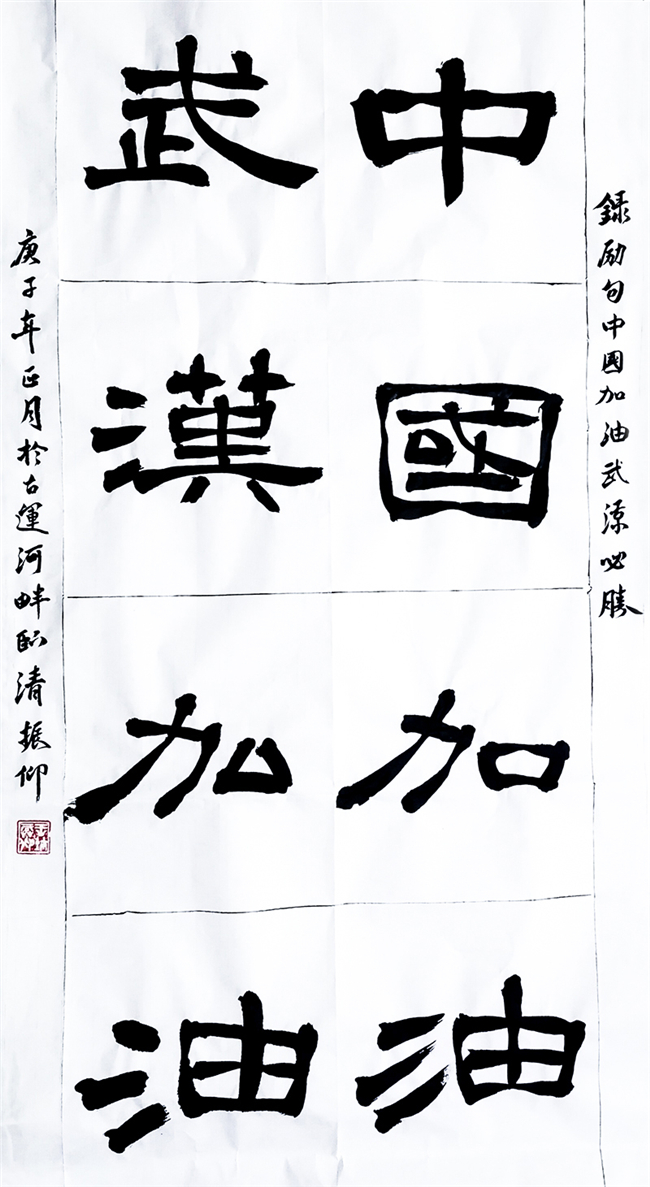 録励句中國加油武漢必勝
中國加油
武漢加油
庚子年正月於古運河畔臨清振仰